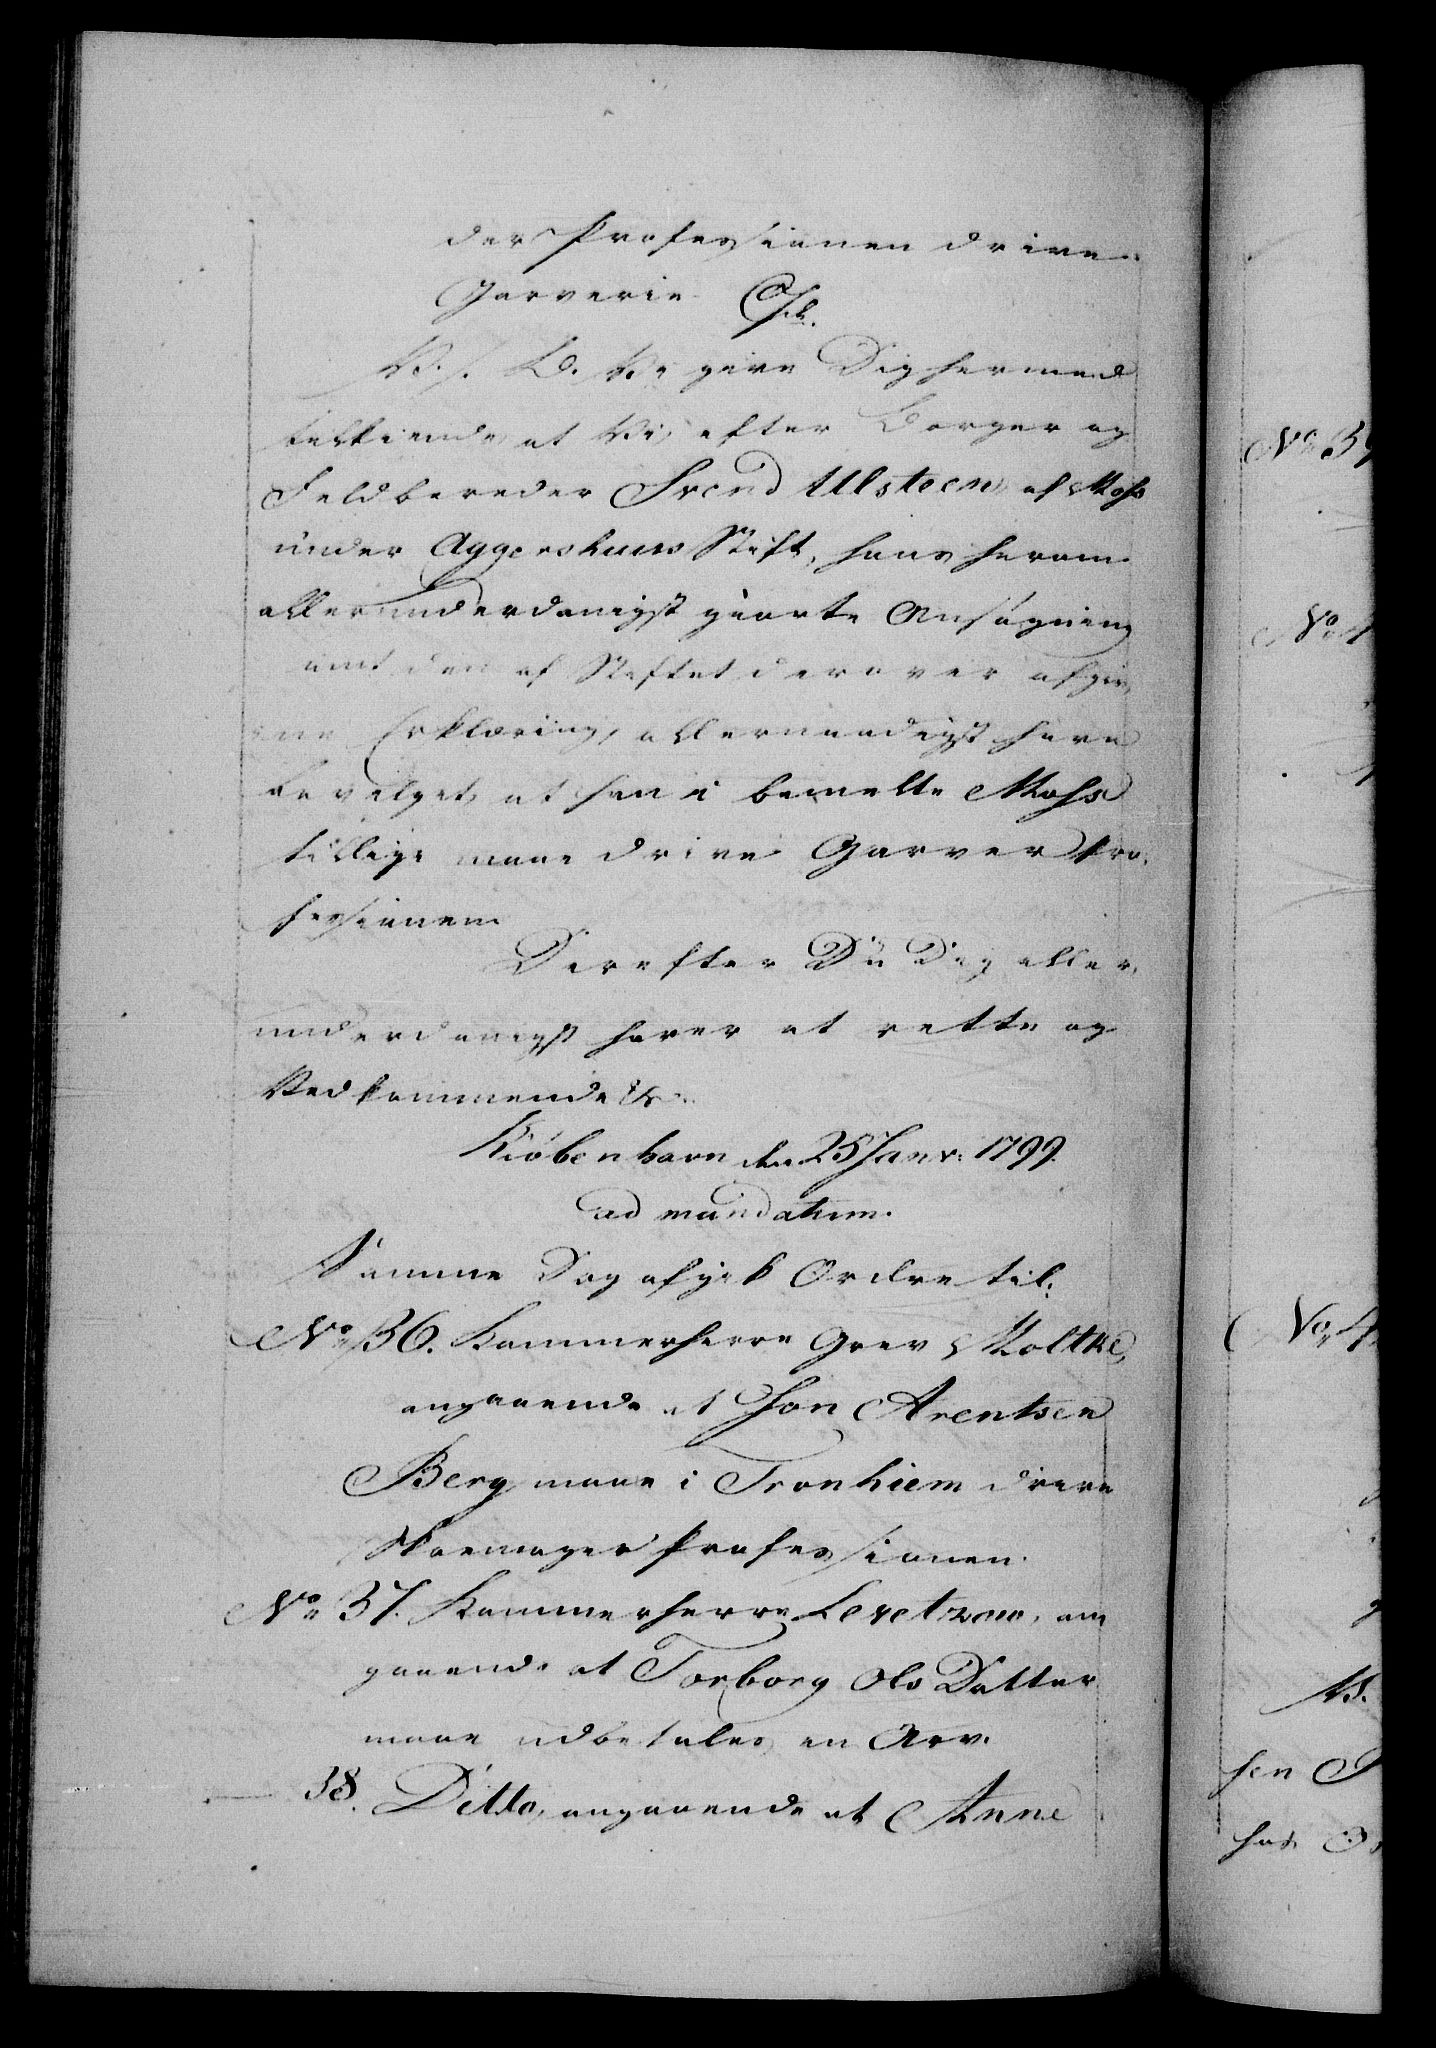 der Professionen drive
Garverie
V. S. B. Vi give Dig hermed
tilkiende, at Vi, efter Borger og
Feldbereder Svend Ulsteen, af Moss
under Aggershuus Stift, hans herom
allerunderdanigst giorte Ansøgning
samt den af Stiftet derover afgiv,
ne Erklæring, allernaadigst have
bevilget, at han i bemelte Moss
tillige maae drive Garver Pro,
fessionen.
Derefter Du Dig aller,
underdanigst haver at rette og
Vedkommende &c.
Kiøbenhavn den 25 Janv: 1799.
ad mandatum.
Samme Dag afgik Ordre til:
No 36. Kammerherre Grev Moltke,
angaaende at Jon Arentsen
Berg maae i Tronhiem drive
Skoemager Professionen.
No 37. Kammerherre Levetzow, an
gaaende at Torborg Ols Datter
maae udbetales en Arv.
— 38. Ditto, angaaende at Anne
No 39
No 4
No 4
V.
sen
hos